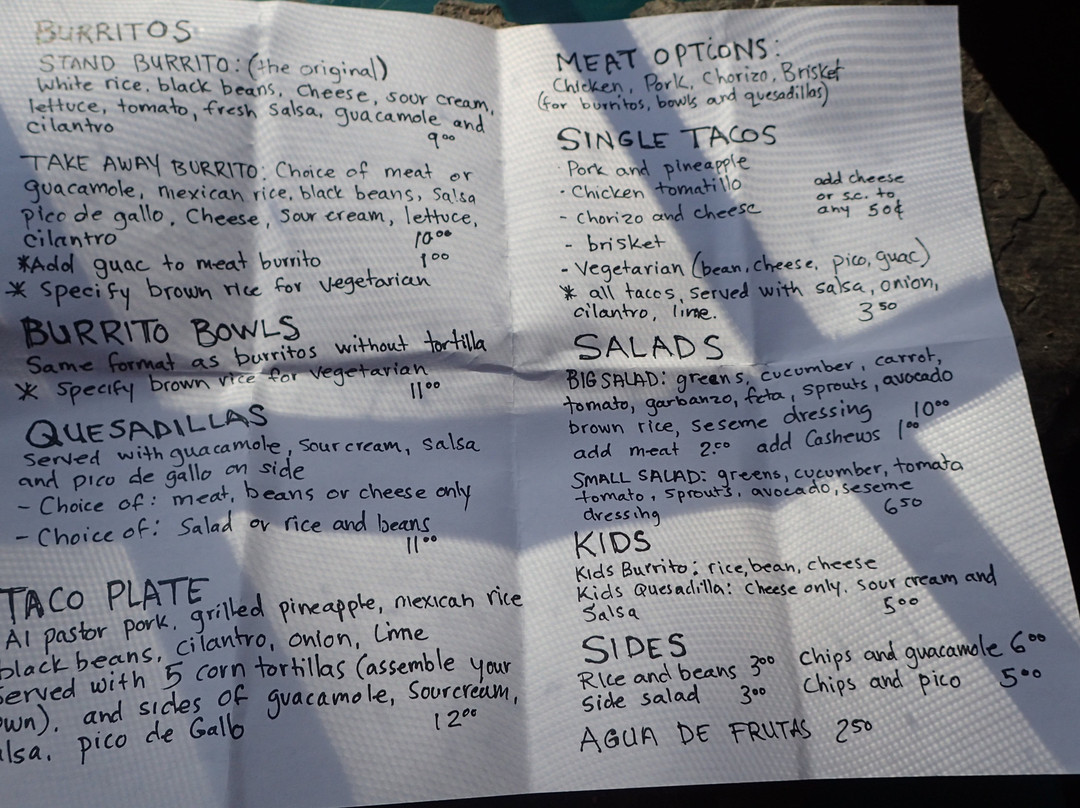 BURRITOS
STAND BURRITO: (the original)
White rice, black beans, cheese, sour cream,
lettuce, tomato, fresh salsa, guacamole and
cilantro 9⁰⁰
TAKE AWAY BURRITO: Choice of meat or
guacamole, mexican rice, black beans, Salsa
pico de gallo, Cheese, sour cream, lettuce,
cilantro 10⁰⁰
*Add guac to meat burrito 1⁰⁰
* Specify brown rice for vegetarian
BURRITO BOWLS
Same format as burritos without tortilla
* Specify brown rice for vegetarian
11⁰⁰
QUESADILLAS
Served with guacamole, sour cream, salsa
and pico de gallo on side
- Choice of: meat, beans or cheese only
- Choice of: Salad or rice and beans
11⁰⁰
TACO PLATE
Al pastor pork, grilled pineapple, mexican rice
black beans, cilantro, onion, lime
served with 5 corn tortillas (assemble your
own), and sides of guacamole, Sourcream,
lsa, pico de Gallo 12⁰⁰
MEAT OPTIONS:
Chicken, Pork, Chorizo, Brisket
(for burritos, bowls and quesadillas)
SINGLE TACOS
· Pork and pineapple
· Chicken tomatillo
- Chorizo and cheese
- brisket
add cheese
or s.c. to
any 50¢
- Vegetarian (bean, cheese, pico, guac)
* all tacos, served with salsa, onion,
cilantro, lime. 3⁵⁰
SALADS
BIG SALAD: greens, cucumber, carrot,
tomato, garbanzo, feta, sprouts, avocado
brown rice, seseme dressing 10⁰⁰
add meat 2⁰⁰ add Cashews 1⁰⁰
SMALL SALAD: greens, cucumber, tomata
tomato, sprouts, avocado, seseme
dressing 6⁵⁰
KIDS
Kids Burrito: rice, bean, cheese
Kids Quesadilla: Cheese only. sour cream and
Salsa 5⁰⁰
SIDES
Rice and beans 3⁰⁰ Chips and guacamole 6⁰⁰
Side salad 3⁰⁰ Chips and pico 5⁰⁰
AGUA DE FRUTAS 2⁵⁰